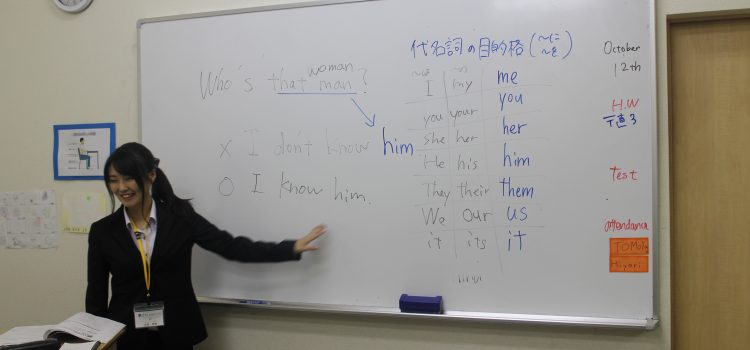 代名詞の目的格 (〜に
〜を)
woman
Who's that man?
× I don't know him
○ I know him.
〜は 〜の
I my me
you your you
she her her
He his him
They their them
We our us
it its it
October
12th
H.W
Test
attendance
Hiyori